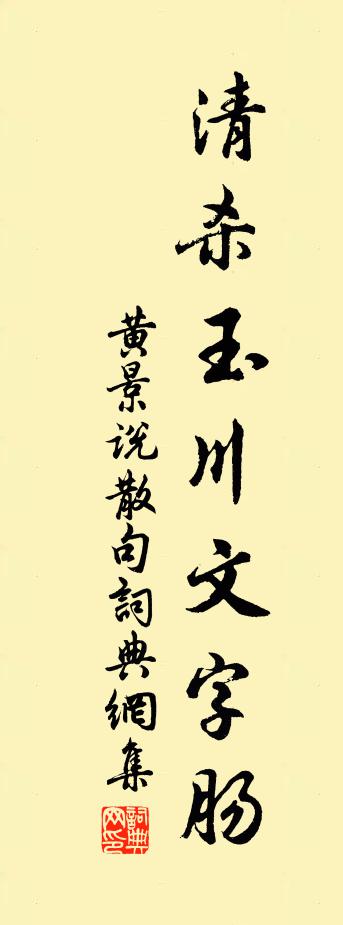 清杀玉川文字肠
黄景说散句詞典網集
詞典网印